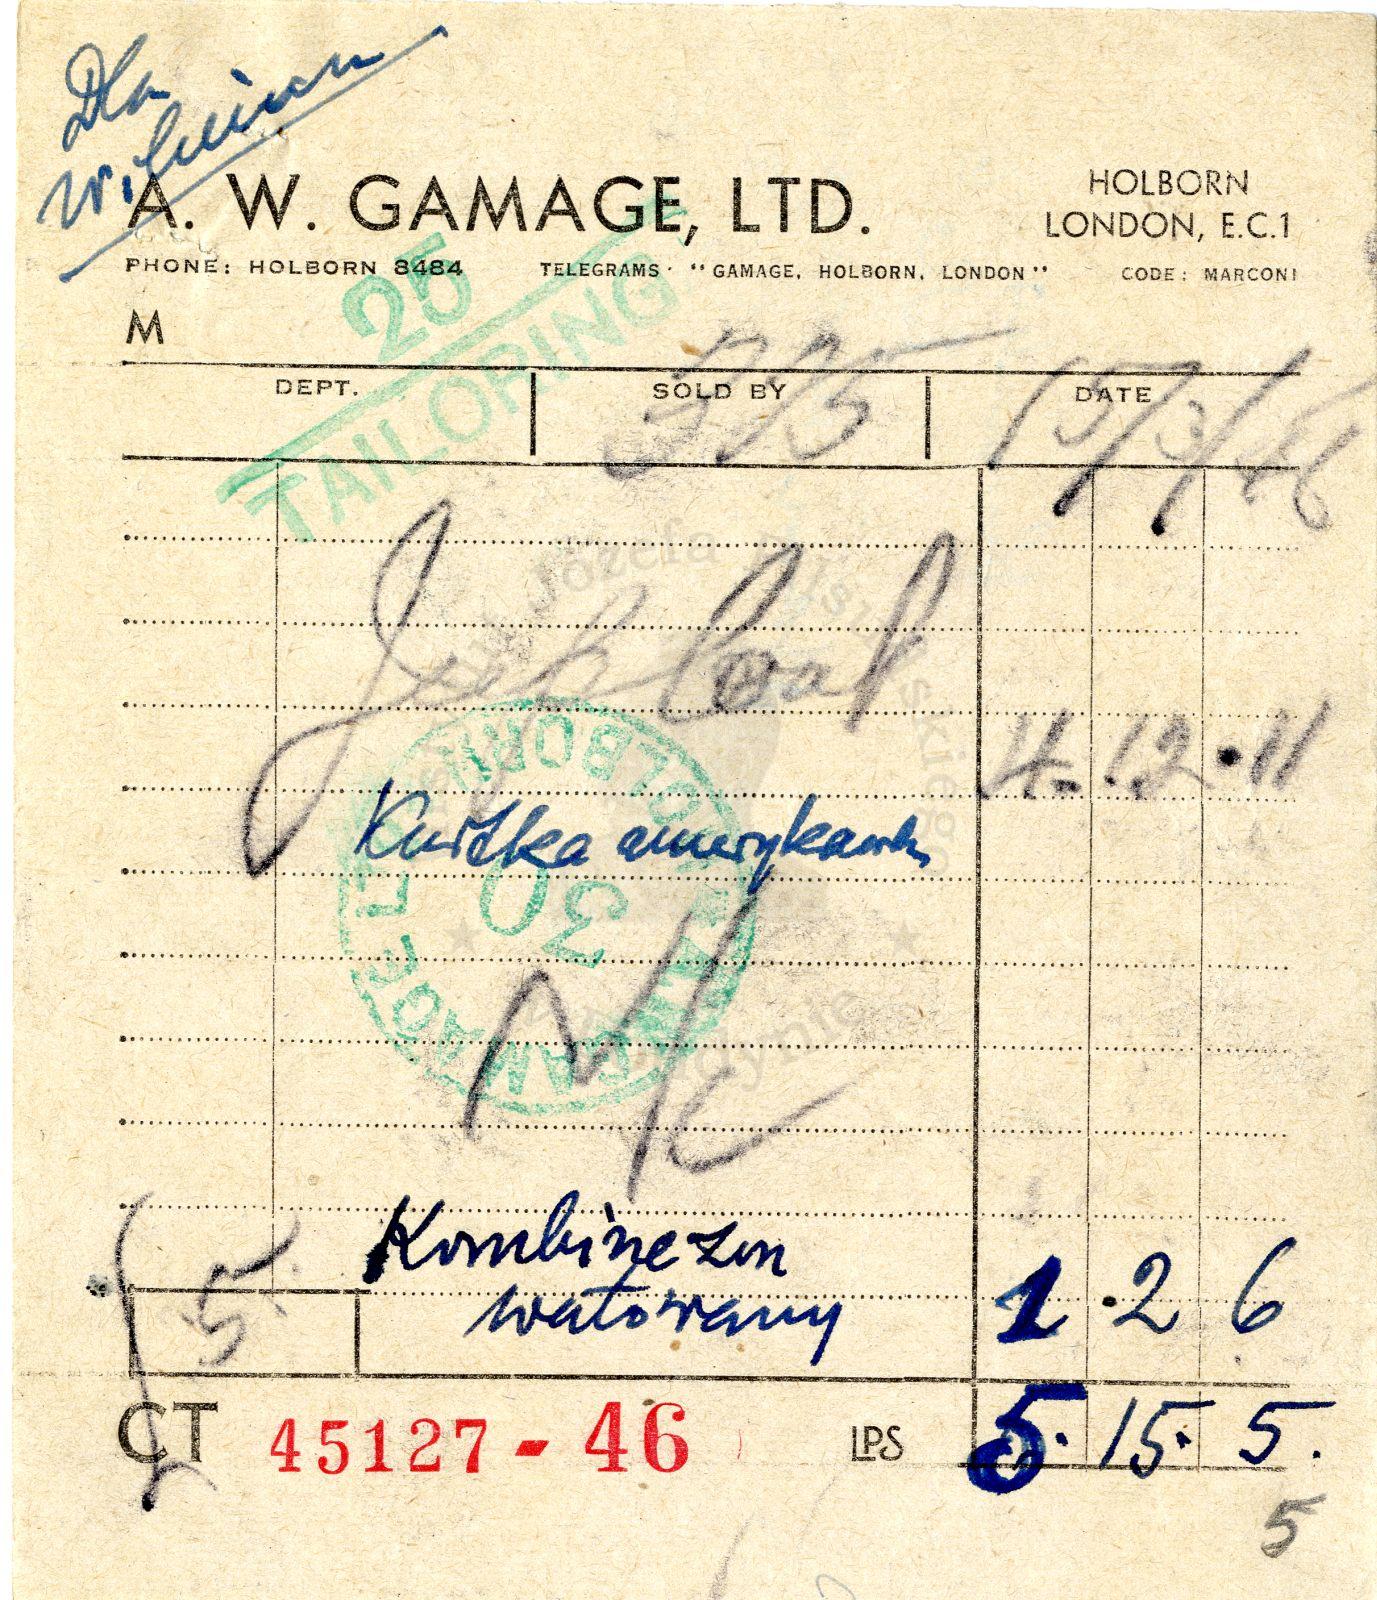 Dla
A. W. GAMAGE, LTD.
HOLBORN
LONDON, E.C.1
PHONE: HOLBORN 8484 TELEGRAMS · "GAMAGE, HOLBORN, LONDON" CODE: MARCONI
25
TAILORING
M
DEPT. SOLD BY DATE
15/3/46
4.12.11
Kurtka amerykańska
GAMAGE LTD HOLBORN
30
Kombinezon
watowany 1.2 6
5.
CT 45127-46 LPS 5.15.5.
5